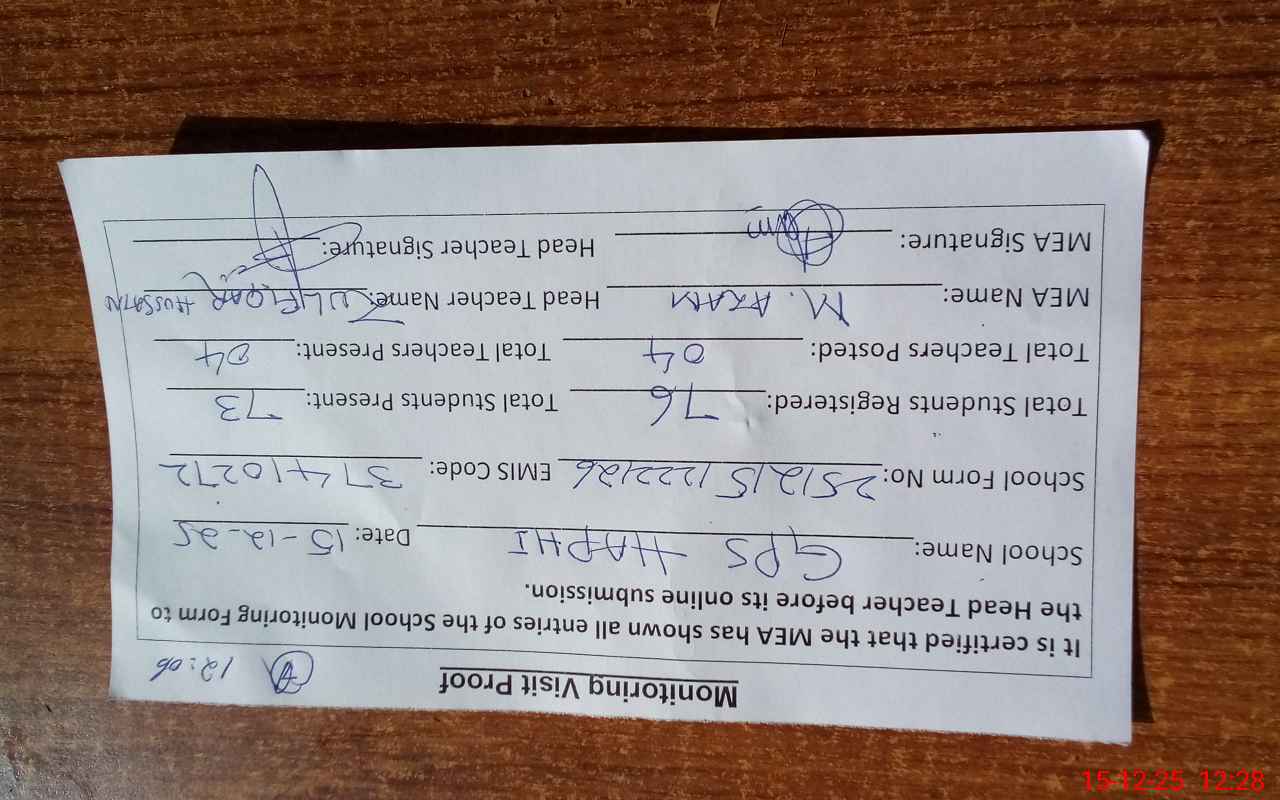 Monitoring Visit Proof
A 12:06
It is certified that the MEA has shown all entries of the School Monitoring Form to
the Head Teacher before its online submission.
School Name: GPS HAPHI Date: 15-12-25
School Form No: 251215122226 EMIS Code: 37410272
Total Students Registered: 76 Total Students Present: 73
Total Teachers Posted: 04 Total Teachers Present: 04
MEA Name: M. AZAM Head Teacher Name: ZULFIQAR HUSSAIN
MEA Signature: Head Teacher Signature:
15-12-25 12:28